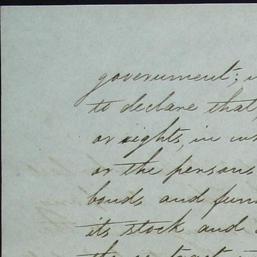 government;
to declare that,
or rights, in
or the persons
bonds and
its stock and